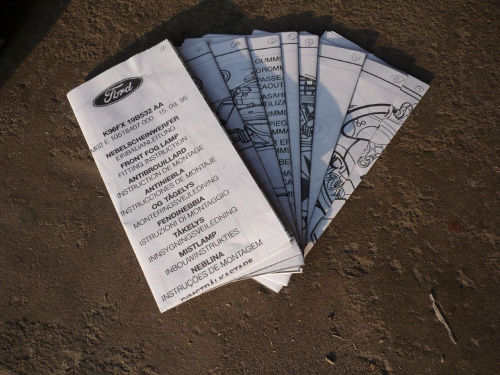 Ford
K96FX 19B532 AA
M62 E 10518407 000 15. 09. 95
NEBELSCHEINWERFER
EINBAUANLEITUNG
FRONT FOG LAMP
FITTING INSTRUCTION
ANTIBROUILLARD
INSTRUCTION DE MONTAGE
ANTINIEBLA
INSTRUCCIONES DE MONTAJE
OG TÅGELYS
MONTERINGSVEJLEDNING
FENDINEBBIA
ISTRUZIONI DI MONTAGGIO
TÅKELYS
INNSYGNINGSVEILEDNING
MISTLAMP
INBOUWINSTRUKTIES
NEBLINA
INSTRUÇÕES DE MONTAGEM
DIMSTRÅLKASTARE
GUMMI
GROMM
PASSE
CAOUT